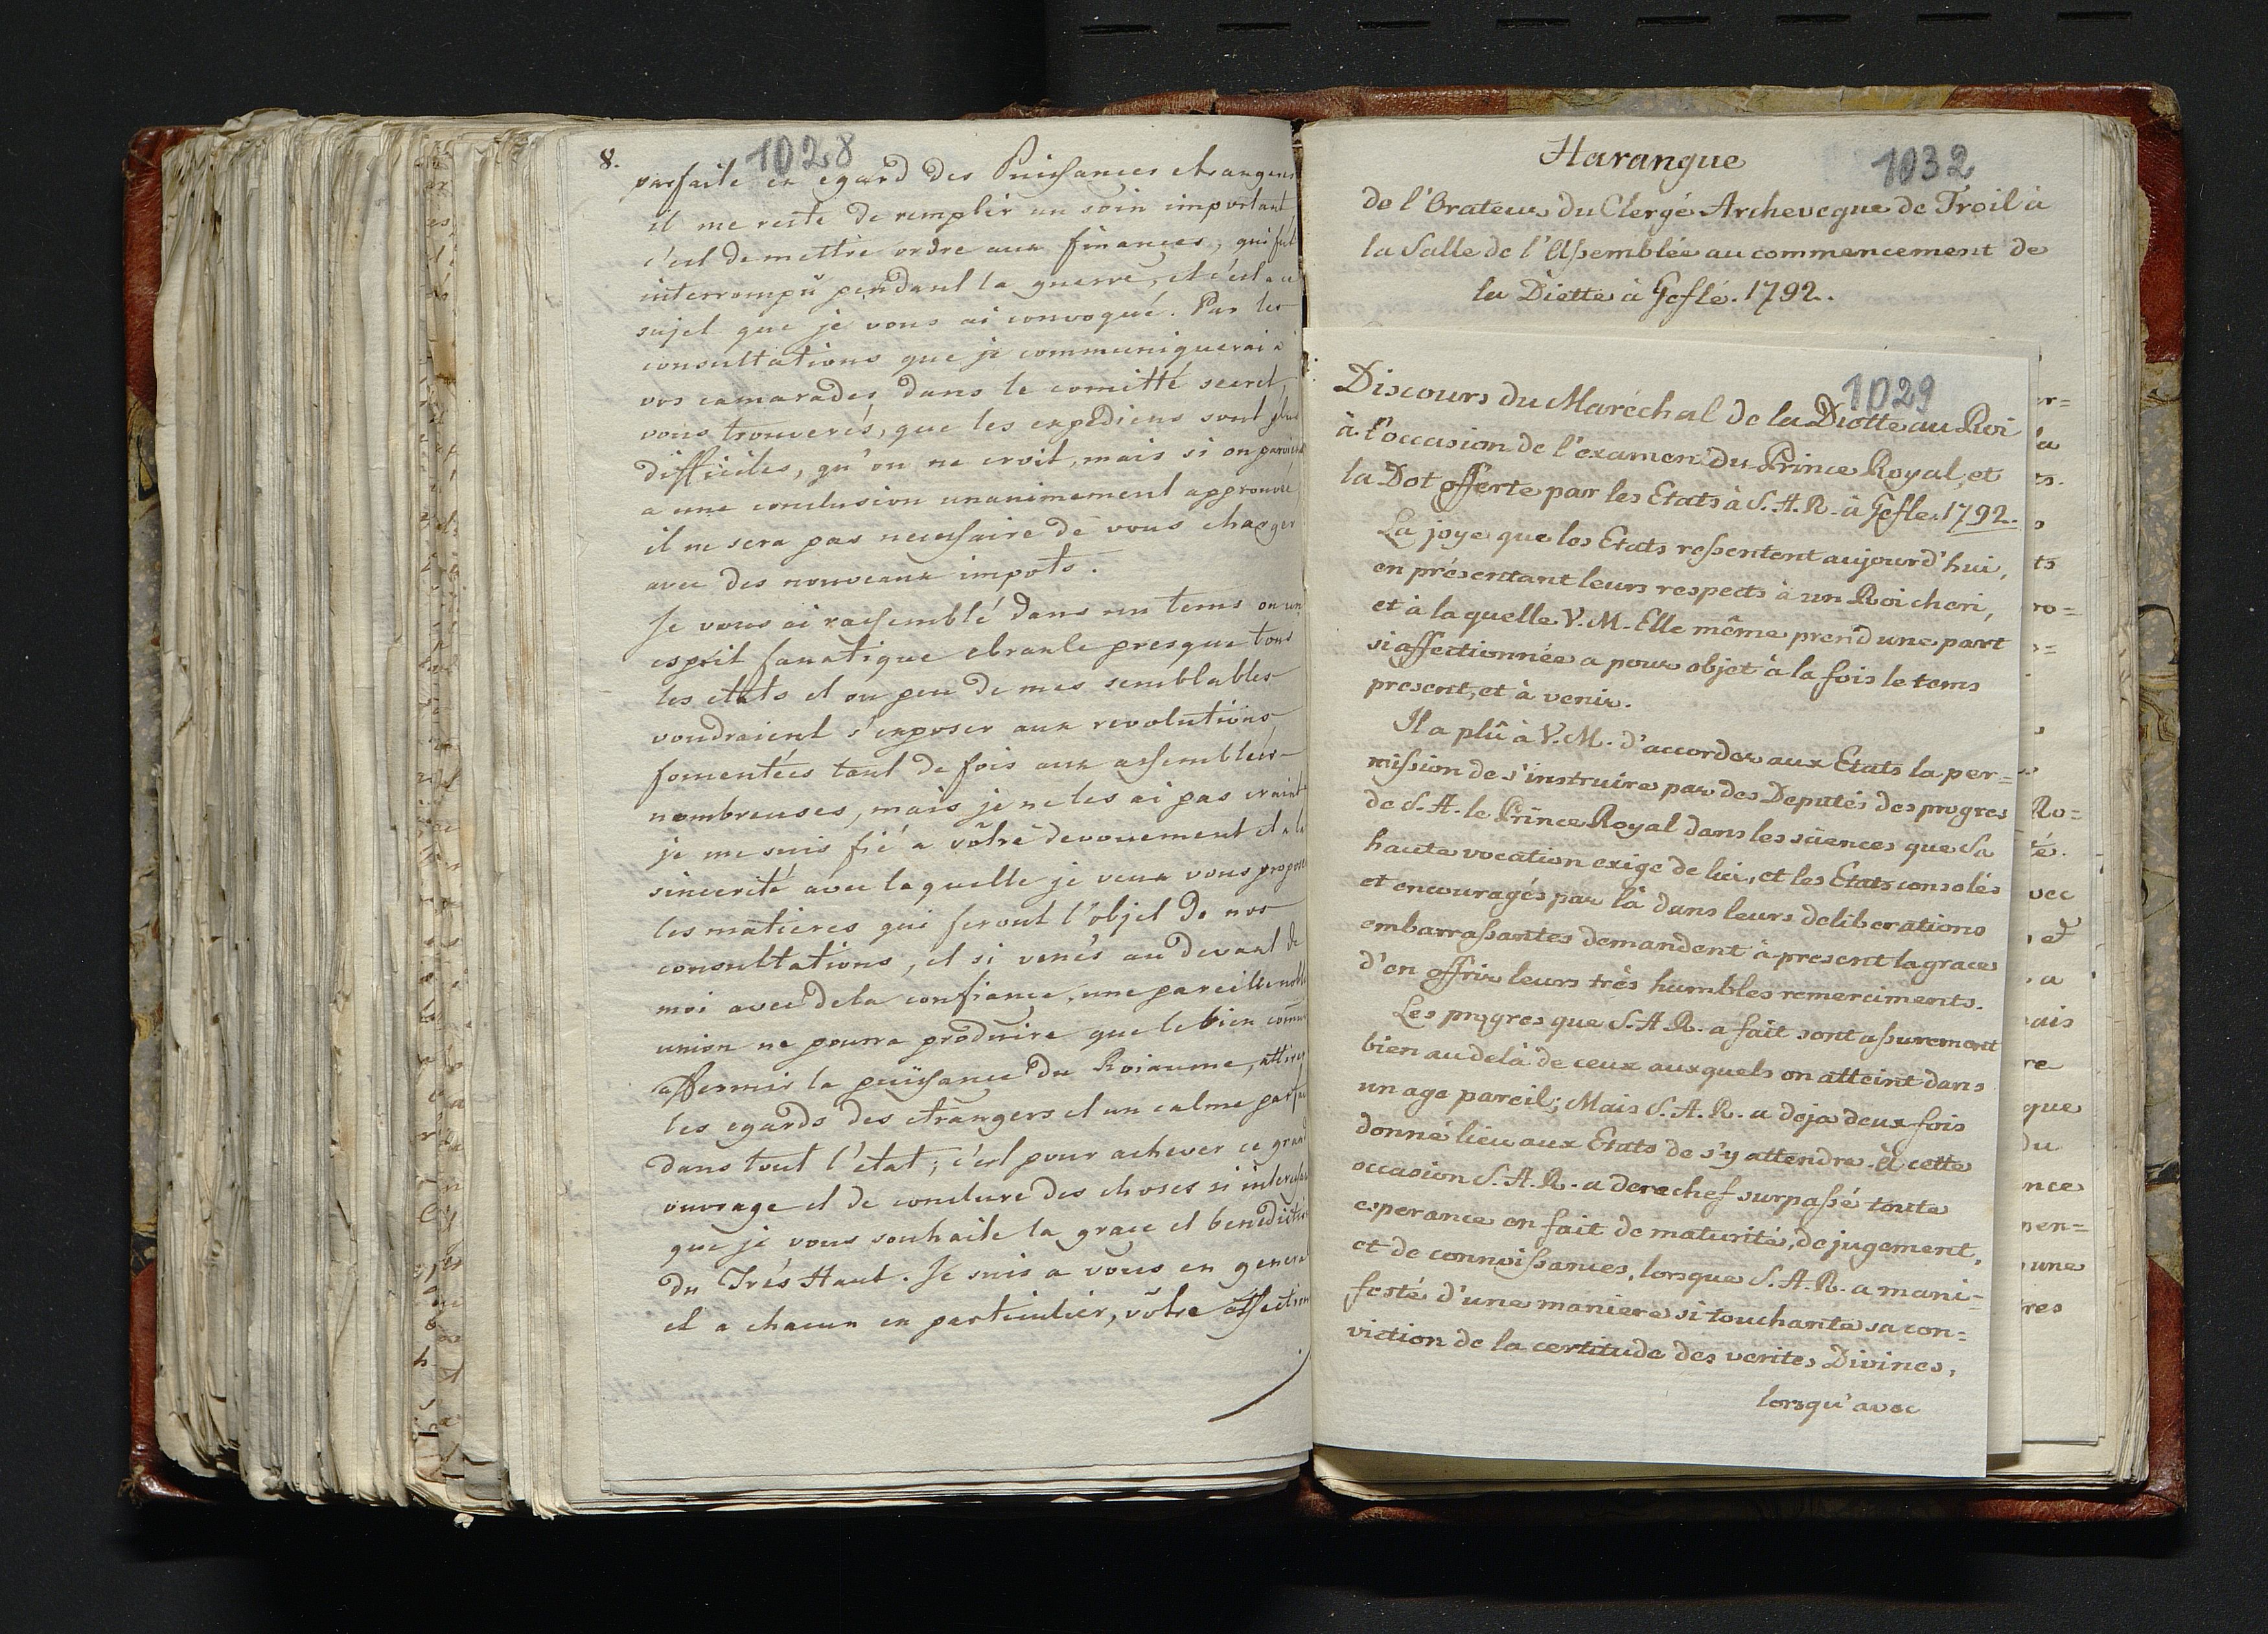 8.
1028
parfaite en egard des Puissances etrangeres
il me reste de remplir un soin important
c'est de mettre ordre aux finances, qui fut
interrompû pendant la guerre, et c'est a ce
sujet que je vous ai convoqué. Par les
consultations que je communiquerai à
vos camarades dans le comitté secret,
vous trouverés, que les expediens sont plus
difficiles, qu'on ne croit, mais si on parvient
a une conclusion unanimement approuvée
il ne sera pas necessaire de vous charger
avec des nouveaux impots.
Je vous ai rassemblé dans un tems ou un
esprit fanatique ebranle presque tous
les etats et ou peu de mes semblables
voudraient s'exposer aux revolutions
fomentées tant de fois aux assemblées
nombreuses, mais je ne les ai pas craint
je me suis fié a vôtre devouement et a la
sincerité avec laquelle je veux vous propos
les matieres qui seront l'objet de nos
consultations, et si venés au devant de
moi avec de la confiance, une pareille noble
union ne pourra produire que le bien comm
affermir la puissance du Roiaume, attirer
les egards des etrangers et un calme parfai
dans tout l'etat; c'est pour achever ce grand
ouvrage et de conclure des choses si interess
que je vous souhaite la grace et benedictio
du Très Haut. Je suis a vous en genera
et a chacun en particulier, vôtre affection
Harangue
1032
de l'Orateur du Clergé Archeveque de Troil à
la Salle de l'Assemblée au commencement de
la Diette à Gefle. 1792.
1029
Discours du Maréchal de la Diette au Roi
à l'occasion de l'examen du Prince Royal, et
la Dot offerte par les Etats à S.A.R. à Gefle. 1792.
La joye que les Etats ressentent aujourd'hui,
en présentant leurs respects à un Roi cheri,
et à laquelle V.M. Elle même prend une part
si affectionnée a pour objet à la fois le tems
present, et à venir.
Il a plû à V.M. d'accorder aux Etats la per=
mission de s'instruire par des Deputés des progres
de S.A. le Prince Royal dans les sciences que Sa
haute vocation exige de lui, et les Etats consolés
et encouragés par là dans leurs deliberations
embarrassantes demandent à present la grace
d'en offrir leurs très humbles remerciments.
Les progres que S.A.R. a fait sont assurement
bien au delà de ceux auxquels on atteint dans
un age pareil; Mais S.A.R. a deja deux fois
donné lieu aux Etats de s'y attendre. à cette
occasion S.A.R. a derechef surpassé toute
esperance en fait de maturité, de jugement,
et de connoissances, lorsque S.A.R. a mani=
festé d'une maniere si touchante sa con=
viction de la certitude des verites Divines,
lorsqu'avec